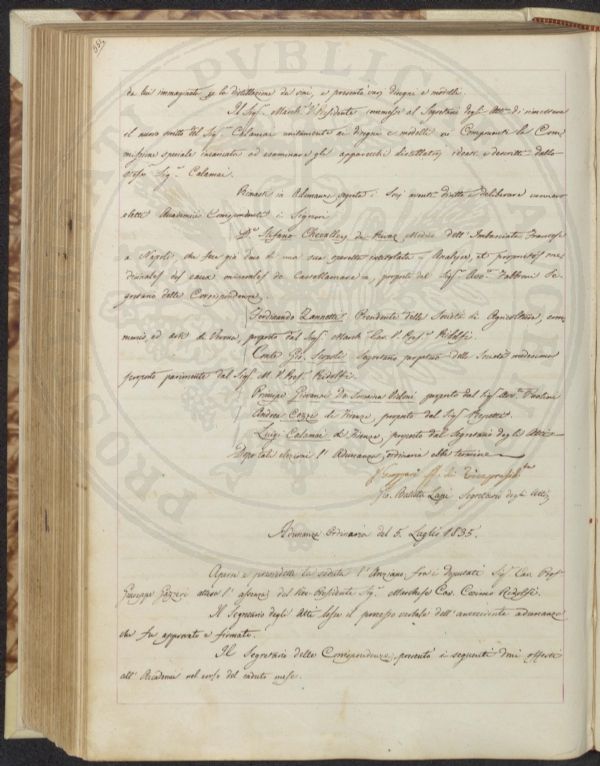 da lui immaginato per la distillazione de vini, e presentò varj disegni e modelli.
Il Sig.r March.e V. Presidente commesse al Segretario degli Atti di rimettere
il nuovo scritto del Sig.r Calamai unitamente ai disegni e modelli ai Componenti la Com-
missione speciale incaricata ad esaminare gli apparecchi distillatorj ideati e descritti dallo
stesso Sig.r Calamai.
Rimasti in Adunanza segreta i Soci aventi diritto a deliberare vennero
eletti Accademici Corrispondenti i Signori
D.r Stefano Chevalley de Rivaz Medico dell' Imbasciata Francese
a Napoli, che fece già dono di una sua operetta intitolata Analyse, et propriétés me-
dicinales des eaux minérales de Castellamare, proposto dal Sig.r Avv.o Tabbrini Se-
gretario delle Corrispondenze.
Ferdinando Zannetti Presidente della Società di Agricoltura, com-
mercio ed arti di proposto dal Sig.r March. Cav. V. Pres.e Ridolfi.
Conte Gio. Segretario perpetuo della Società medesima
proposto parimente dal Sig.r M. V. Pres. Ridolfi.
Principe Giovanni da proposto dal Sig.r
Andrea Cozzi di Firenze, proposto dal Sig.r Repetti.
Luigi Calamai di Firenze, proposto dal Segretario degli Atti.
Dopo tali elezioni l' Adunanza ordinaria ebbe termine
Gio. Batista Lapi Segretario degli Atti
Adunanza Ordinaria del 5. Luglio 1835.
Aperse e presiedette la seduta l' Anziano fra i Deputati Sig.r Can. Prof.
Giuseppe Gazzeri attesa l' assenza del Vice-Presidente Sig.r Marchese Cav. Cosimo Ridolfi.
Il Segretario degli Atti lesse il processo verbale dell' antecedente adunanza
che fu approvato e firmato.
Il Segretario delle Corrispondenze, presentò i seguenti doni offerti
all' Accademia nel corso del caduto mese.